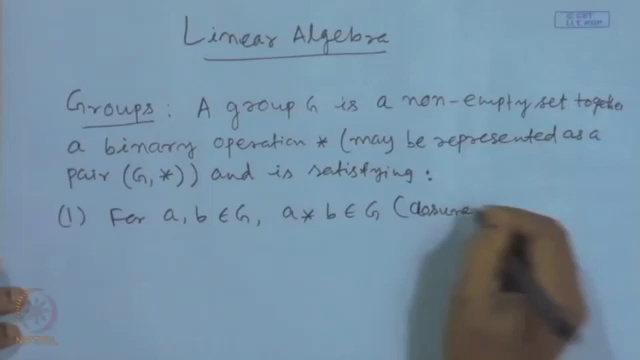 © CET
I.I.T. KGP
Linear Algebra
Groups : A group G is a non-empty set together
a binary operation * (may be represented as a
pair (G, *)) and is satisfying :
(1) For a, b ∈ G, a * b ∈ G (closure
NPTEL